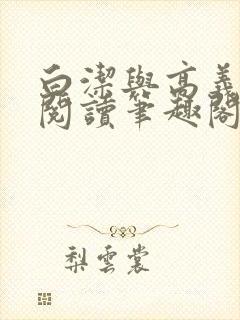 白潔與高義
閱讀筆趣閣
梨雲裳